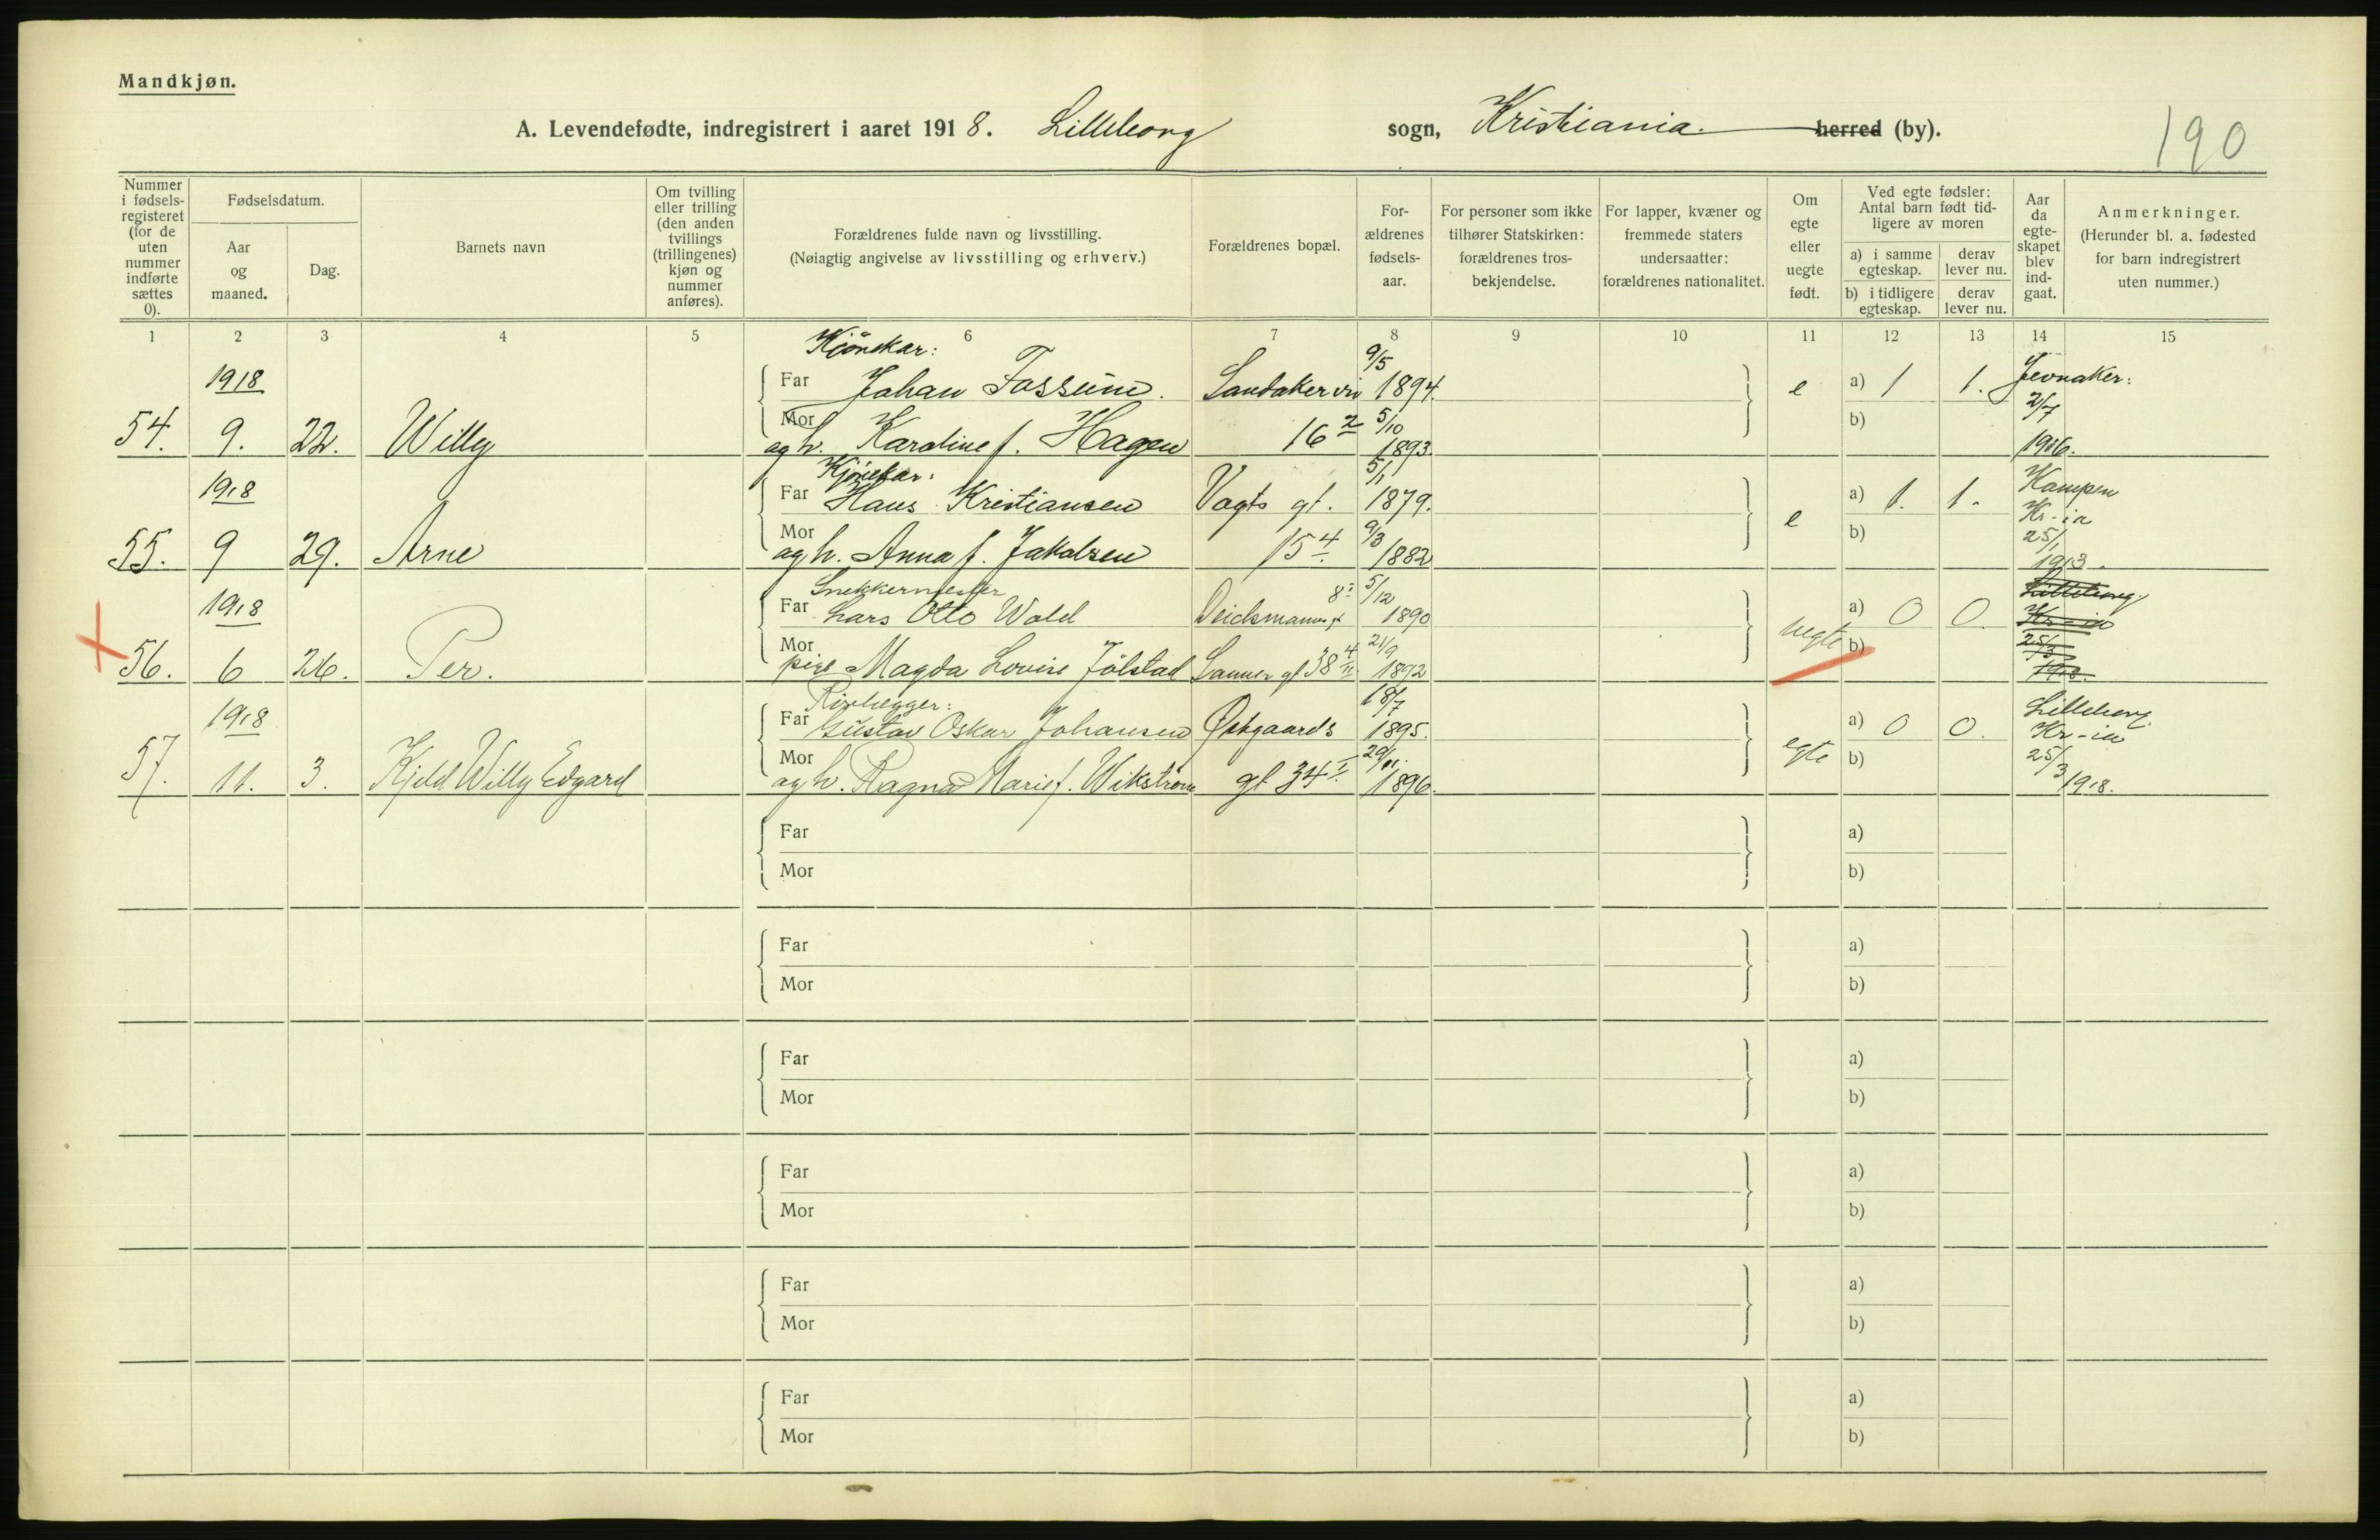 Mandkjøn.
A. Levendefødte, indregistrert i aaret 1918. Lilleborg sogn, Kristiania. herred (by).
190
Nummer i fødsels-registeret (for de uten nummer indførte sættes 0).
Fødselsdatum.
Aar og maaned.
Dag.
Barnets navn
Om tvilling eller trilling (den anden tvillings (trillingenes) kjøn og nummer anføres).
Forældrenes fulde navn og livsstilling.
(Nøiagtig angivelse av livsstilling og erhverv.)
Forældrenes bopæl.
For-ældrenes fødsels-aar.
For personer som ikke tilhører Statskirken: forældrenes tros-bekjendelse.
For lapper, kvæner og fremmede staters undersaatter: forældrenes nationalitet.
Om egte eller uegte født.
Ved egte fødsler: Antal barn født tid-ligere av moren
a) i samme egteskap.
derav lever nu.
b) i tidligere egteskap.
derav lever nu.
Aar da egte-skapet blev ind-gaat.
Anmerkninger.
(Herunder bl. a. fødested for barn indregistrert uten nummer.)
1 2 3 4 5 6 7 8 9 10 11 12 13 14 15
Kjörekar: 9/5
1918 Far Johan Fossum. Sandakervn 1894. e a) 1 1. Jevnaker:
54. 9. 22. Willy Mor og h. Karoline f. Hagen 16 2 5/10 1893. b) 2/7 1916.
Kjörekar: 5/1
1918 Far Hans Kristiansen Vogts gt. 1879. e a) 1. 1. Kampen Kr-ia
55. 9 29. Arne Mor og h. Anna f. Jakobsen 15 4 9/3 1882 b) 25/1 1913.
Snekkermester 5/12
1918 Far Lars Otto Wold Deichmanns gt 8 1890 uegte a) 0 0. Lilleborg Kr-ia
56. 6 26. Per. Mor pike Magda Lovise Jölstad Sanner gt 38 4 II 21/9 1892 b) 25/3 1918.
Rörlegger: 18/7
1918 Far Gustav Oskar Johansen Østgaards 1895. egte a) 0 0. Lilleborg. Kr-ia
57. 11. 3. Kjeld Willy Edgard Mor og h. Ragna Marie f. Wikström gt 34 I. 29/11. 1896. b) 25/3 1918.
Far a)
Mor b)
Far a)
Mor b)
Far a)
Mor b)
Far a)
Mor b)
Far a)
Mor b)
Far a)
Mor b)